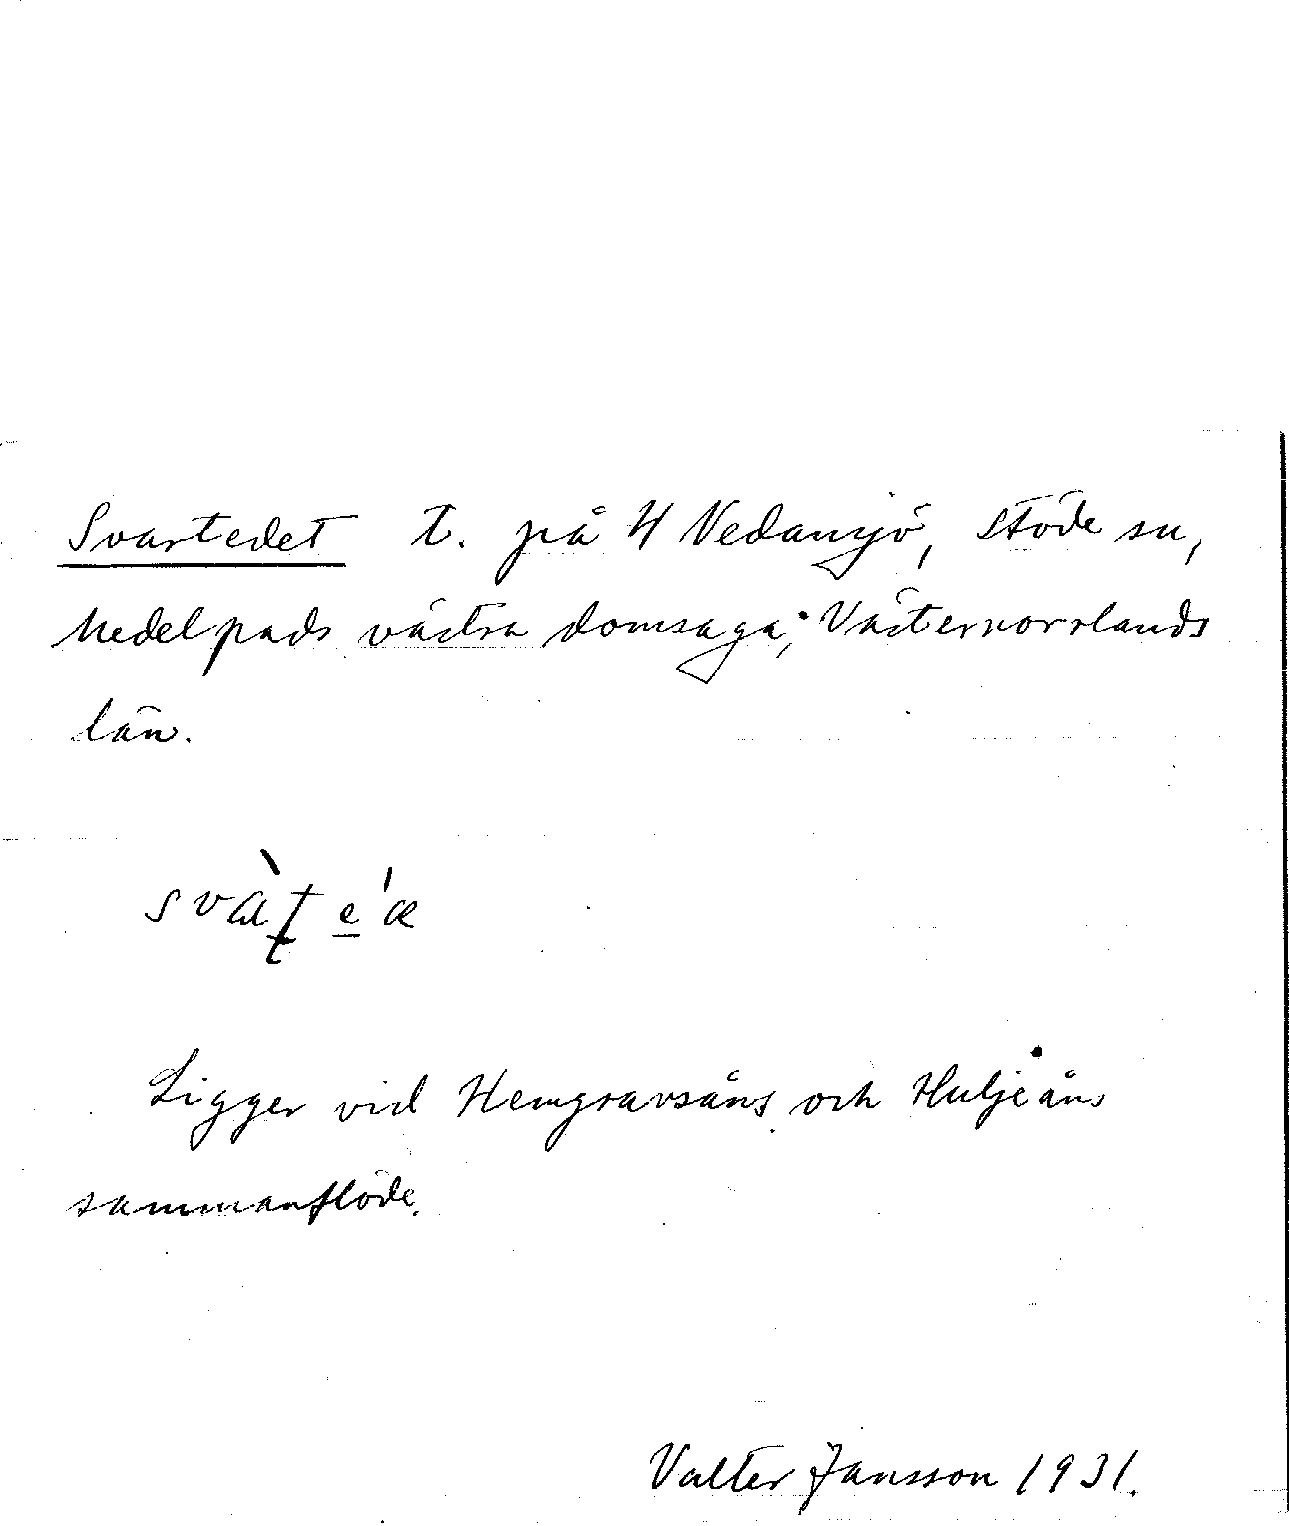 Svartedet t. på 4 Vedansjö, Stöde sn,
Medelpads västra domsaga, Västernorrlands
län.
svàʈ e̲'æ
Ligger vid Hemgravsåns och Huljeåns
sammanflöde.
Valter Jansson 1931.